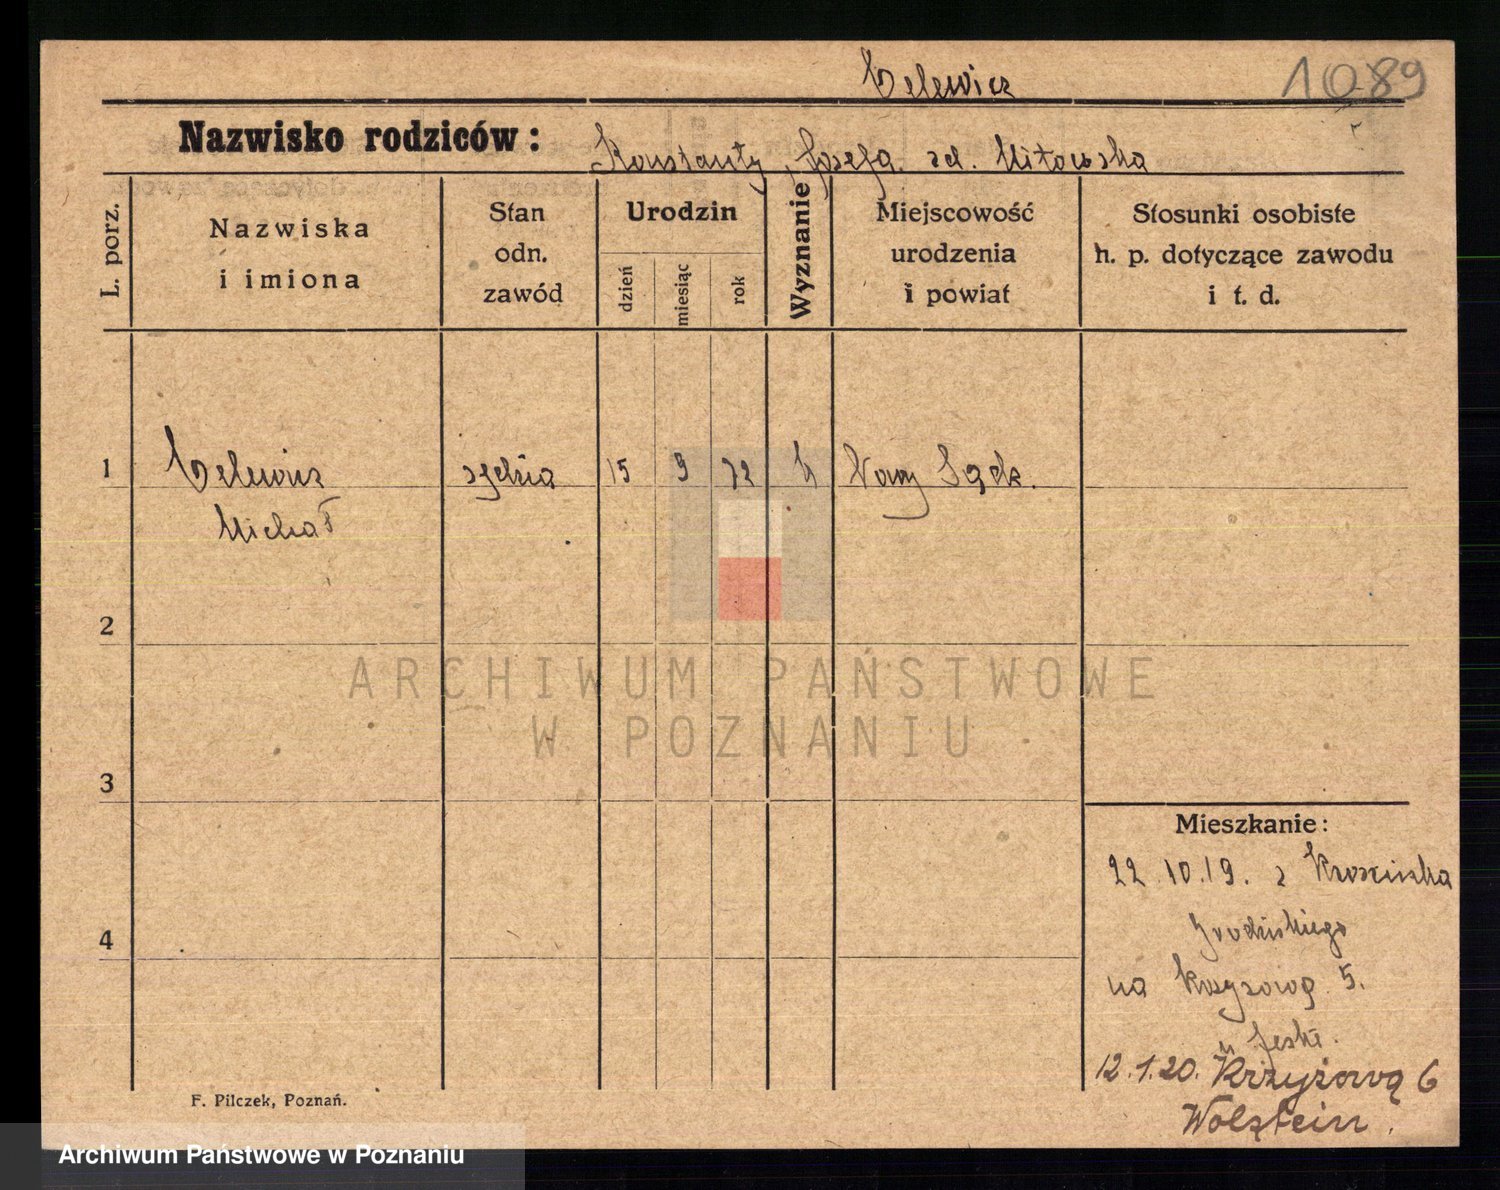 Celewicz
1089
Nazwisko rodziców: Konstanty, Józefa zd. Mitowska
L. porz.
Nazwiska
i imiona
Stan
odn.
zawód
Urodzin
dzień
miesiąc
rok
Wyznanie
Miejscowość
urodzenia
i powiat
Stosunki osobiste
h. p. dotyczące zawodu
i t. d.
1 Celewicz sędzia 15 9 72 k Nowy Sącz.
Michał
2
ARCHIWUM PAŃSTWOWE
W POZNANIU
3
Mieszkanie:
22.10.19. z
4
Grodziskiego
na Krzyżową 5.
u
12.1.20. Krzyżową 6
Wolsztein.
F. Pilczek, Poznań.
Archiwum Państwowe w Poznaniu